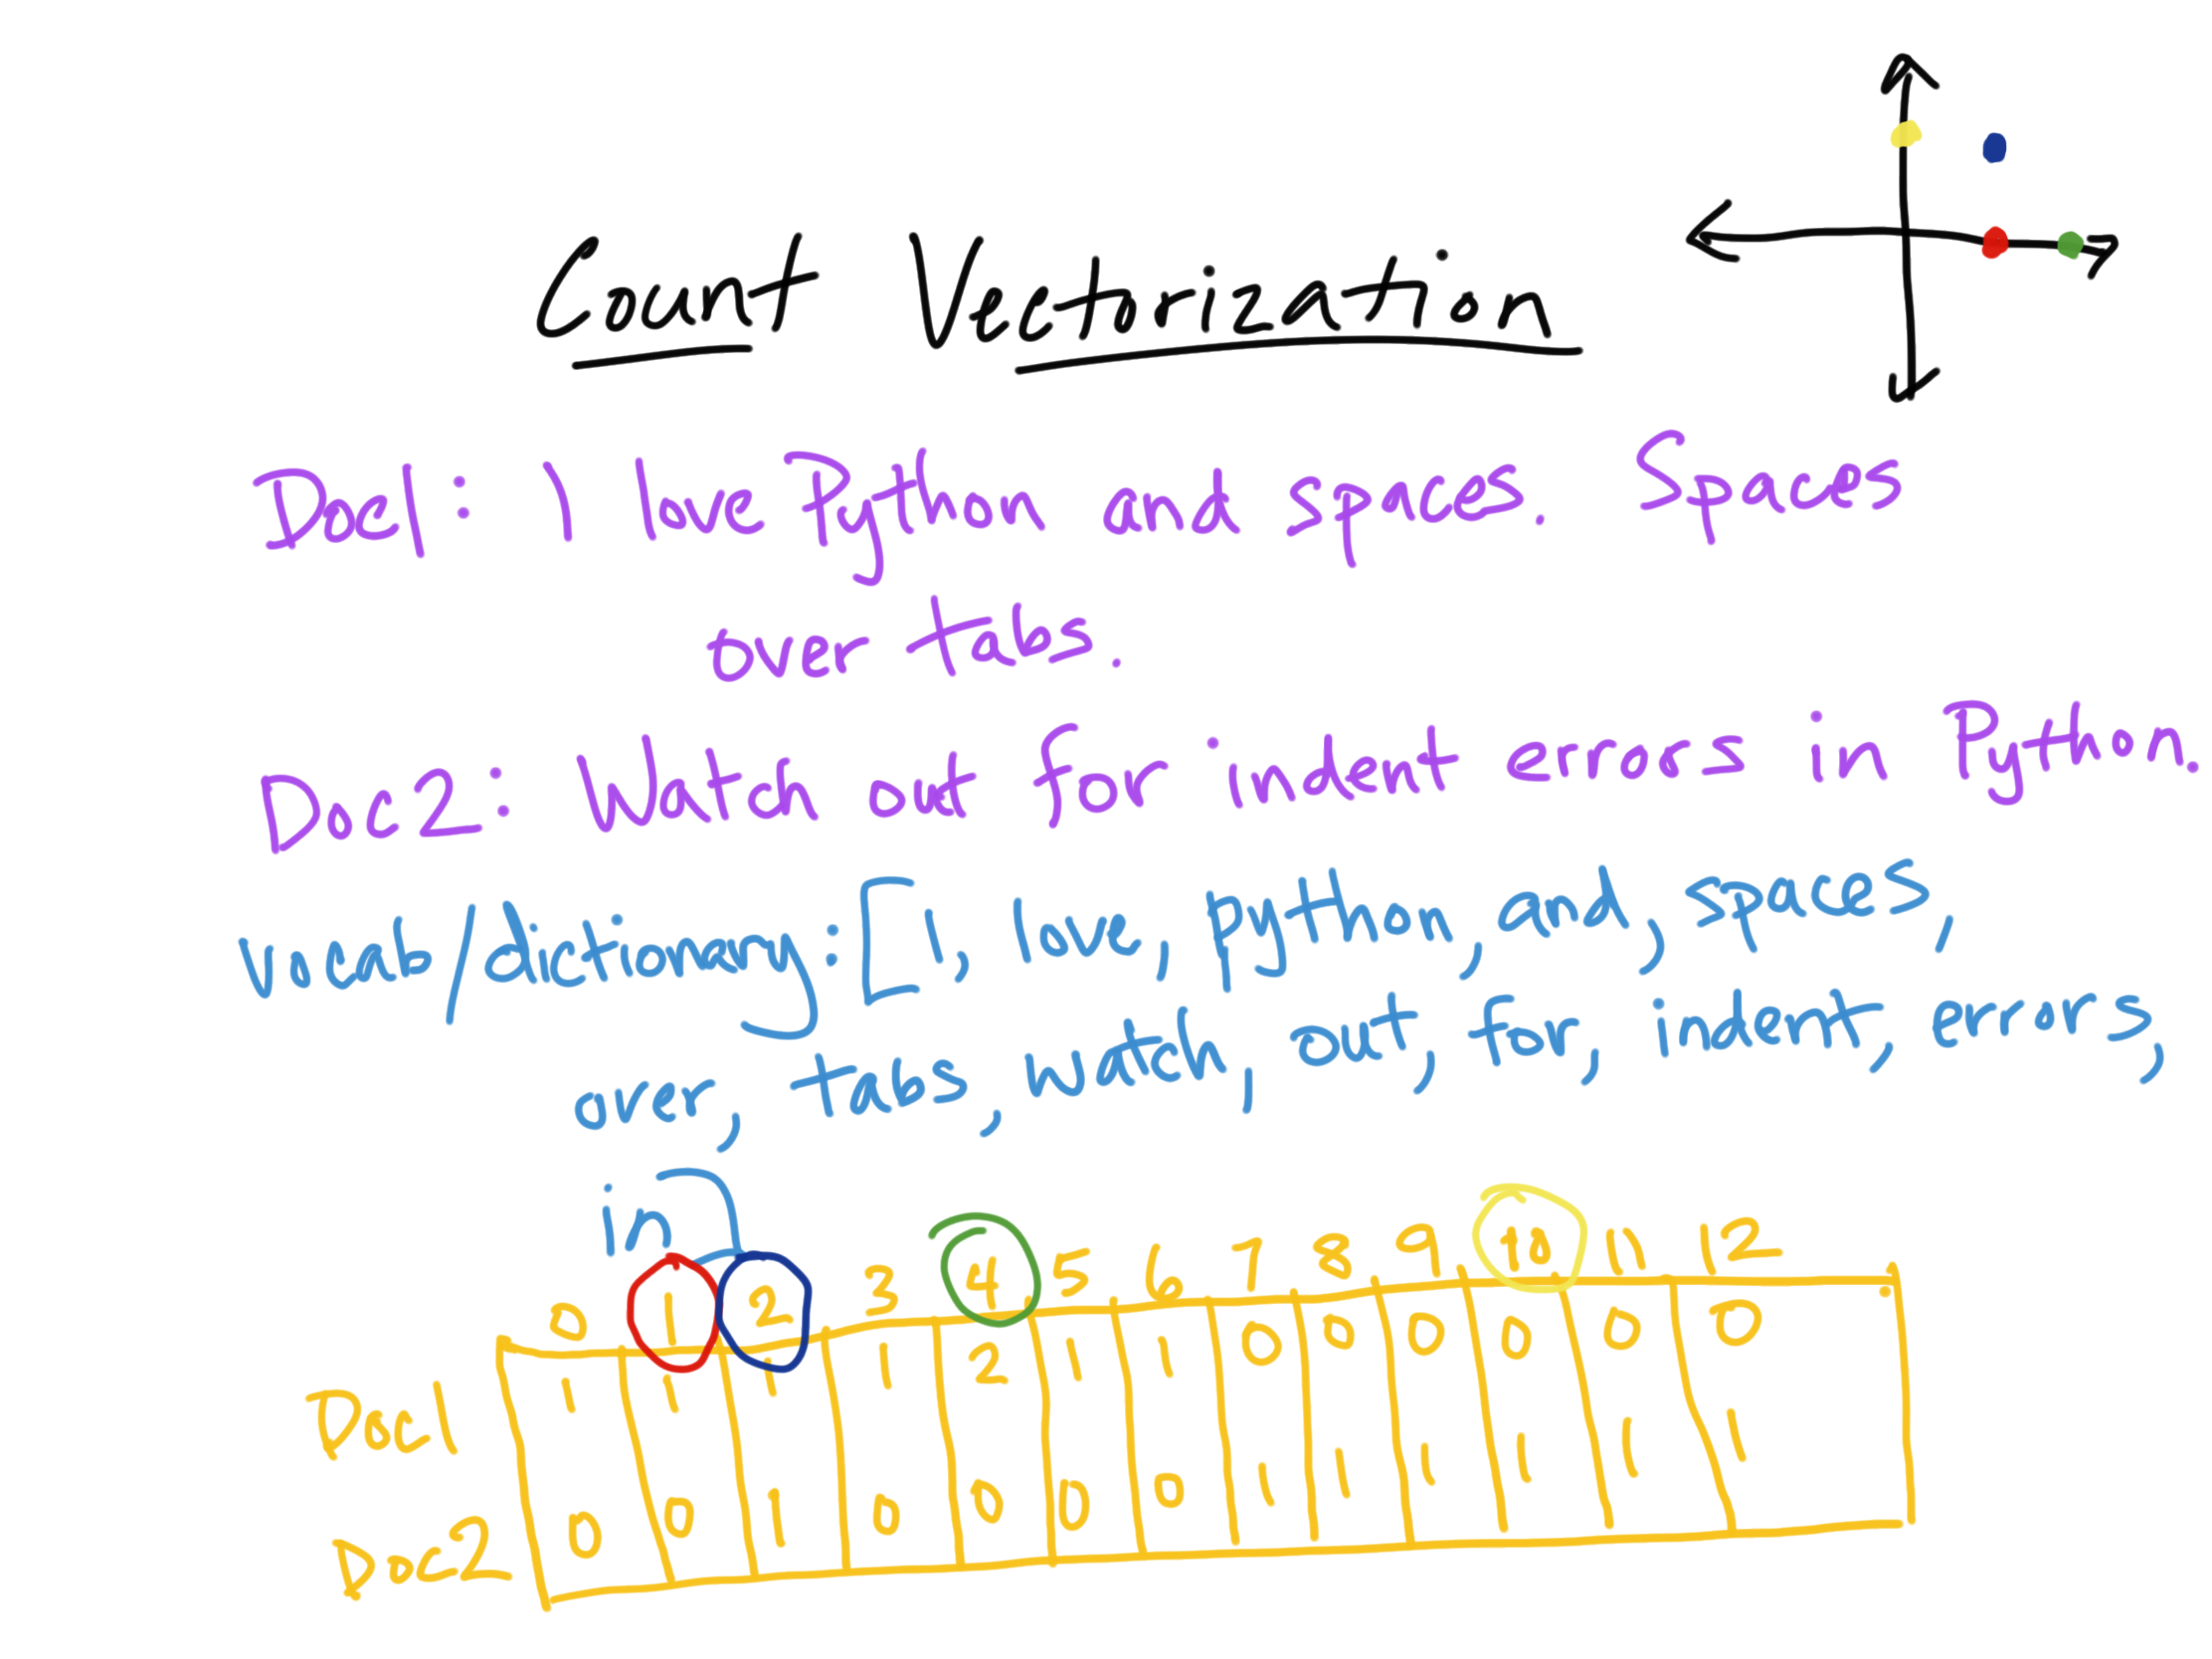 Count Vectorization
Doc1: I love Python and spaces. Spaces
over tabs.
Doc2: Watch out for indent errors in Python.
vocab/dictionary: [I, love, python, and, spaces,
over, tabs, watch, out, for, indent, errors,
in]
0 1 2 3 4 5 6 7 8 9 10 11 12
Doc1 1 1 1 1 2 1 1 0 0 0 0 0 0
Doc2 0 0 1 0 0 0 0 1 1 1 1 1 1